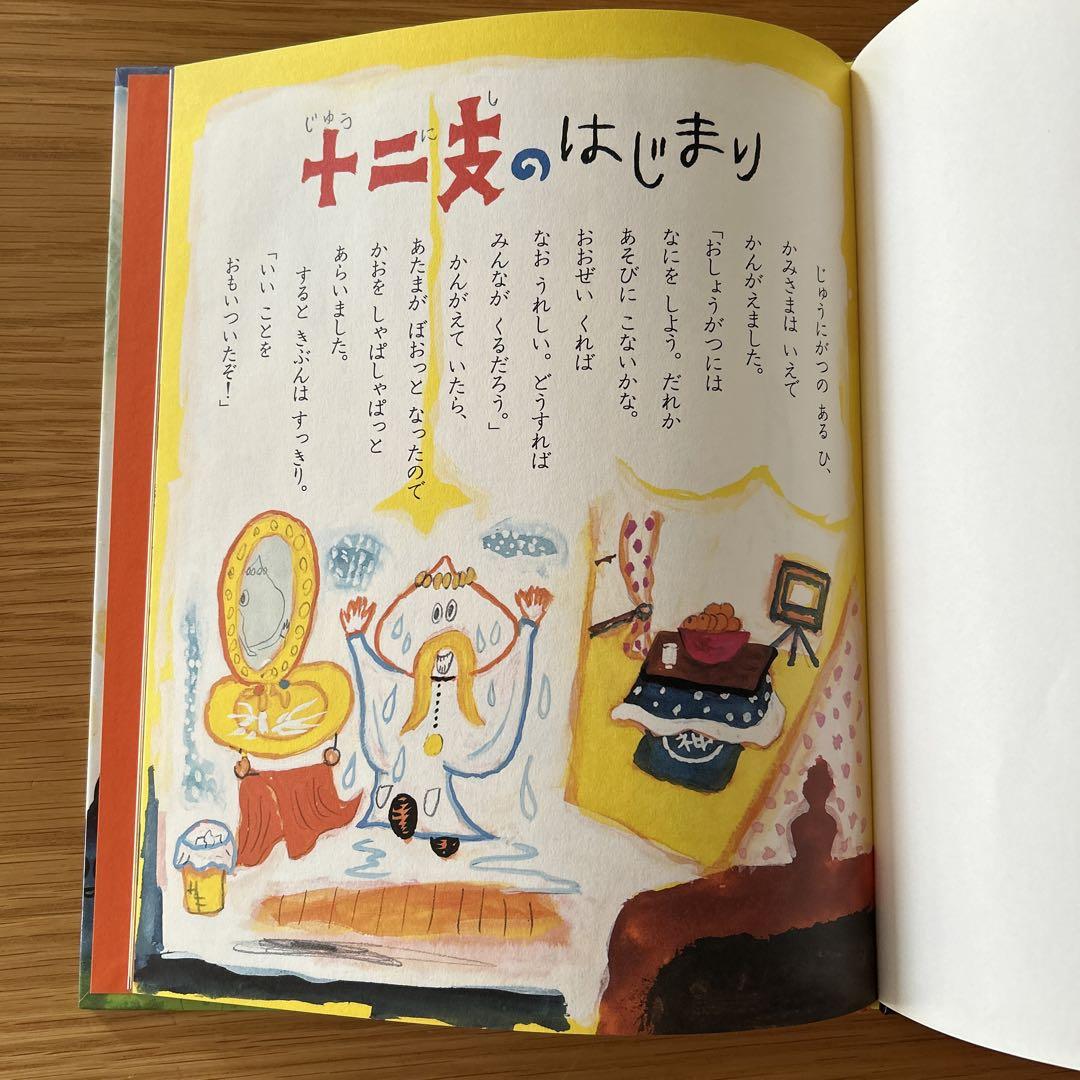 十二支のはじまり
じゅう に し
じゅうにがつの ある ひ、
かみさまは いえで
かんがえました。
「おしょうがつには
なにを しよう。だれか
あそびに こないかな。
おおぜい くれば
なお うれしい。どうすれば
みんなが くるだろう。」
かんがえて いたら、
あたまが ぼおっと なったので
かおを しゃぱしゃぱっと
あらいました。
すると きぶんは すっきり。
「いい ことを
おもいついたぞ！」
神